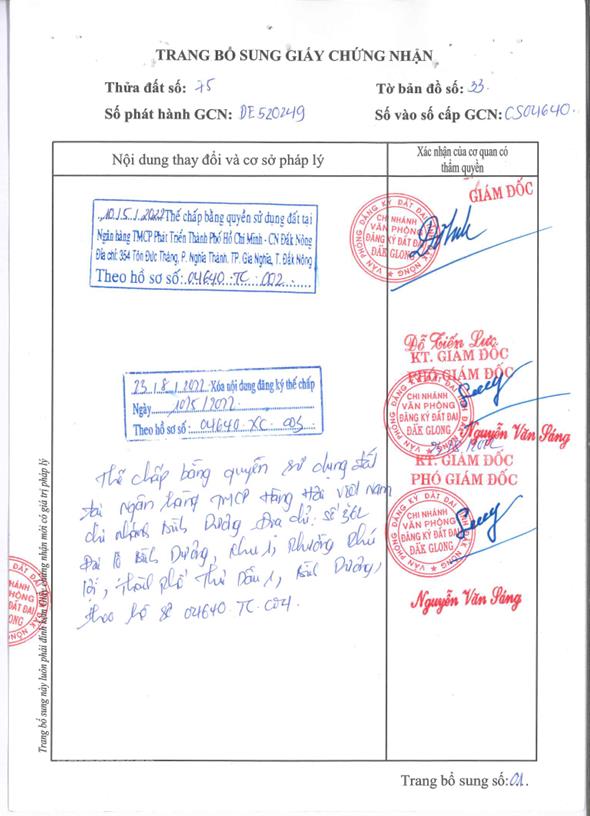 TRANG BỔ SUNG GIẤY CHỨNG NHẬN
Thửa đất số: 75 Tờ bản đồ số: 33
Số phát hành GCN: DE520249 Số vào sổ cấp GCN: CS04640
Nội dung thay đổi và cơ sở pháp lý
Xác nhận của cơ quan có
thẩm quyền
10/5/2022 Thế chấp bằng quyền sử dụng đất tại
Ngân hàng TMCP Phát Triển Thành Phố Hồ Chí Minh - CN Đắk Nông
Địa chỉ: 354 Tôn Đức Thắng, P. Nghĩa Thành, TP. Gia Nghĩa, T. Đắk Nông
Theo hồ sơ số: 04640.TC.002
GIÁM ĐỐC
VĂN PHÒNG ĐĂNG KÝ ĐẤT ĐAI
CHI NHÁNH
VĂN PHÒNG
ĐĂNG KÝ ĐẤT ĐAI
ĐĂK GLONG
Đỗ Tiến Lực
23/8/2022 Xóa nội dung đăng ký thế chấp
Ngày 10/5/2022
Theo hồ sơ số: 04640.XC.003
KT. GIÁM ĐỐC
PHÓ GIÁM ĐỐC
CHI NHÁNH
VĂN PHÒNG
ĐĂNG KÝ ĐẤT ĐAI
ĐĂK GLONG
Nguyễn Văn Sáng
Thế chấp bằng quyền sử dụng đất
tại ngân hàng TMCP Hàng Hải Việt Nam
chi nhánh Bình Dương Địa chỉ: số 306
Đại lộ Bình Dương, khu 1, phường Phú
Lợi, thành phố Thủ Dầu 1, Bình Dương,
theo hồ sơ 04640.TC.004.
KT. GIÁM ĐỐC
PHÓ GIÁM ĐỐC
CHI NHÁNH
VĂN PHÒNG
ĐĂNG KÝ ĐẤT ĐAI
ĐĂK GLONG
Nguyễn Văn Sáng
Trang bổ sung này luôn phải đính kèm Giấy chứng nhận mới có giá trị pháp lý
Trang bổ sung số: 01.